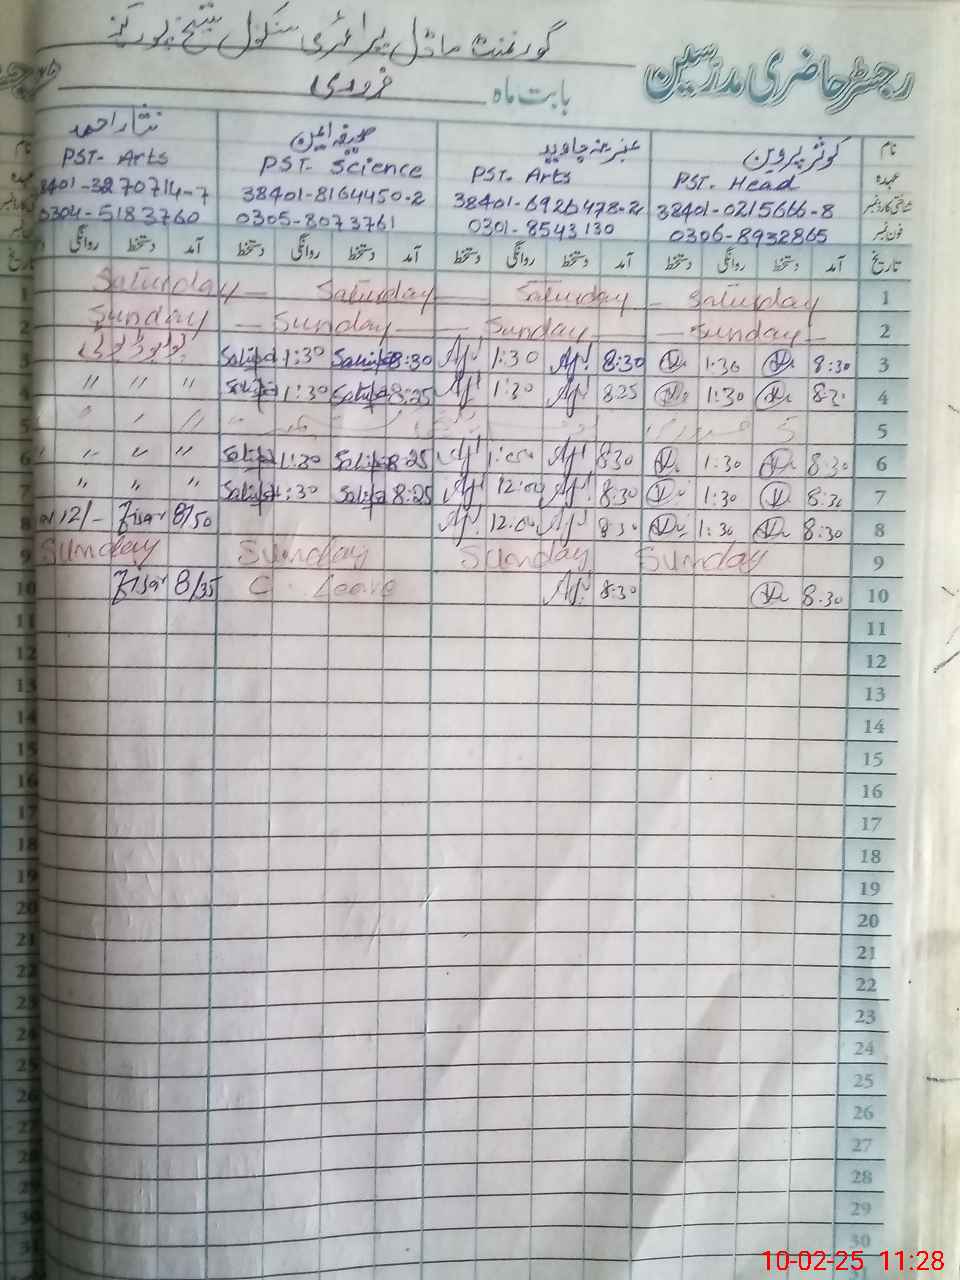 گورنمنٹ ماڈل پرائمری سکول شیخ پور
رجسٹر حاضری مدرسین
بابت ماہ فروری
نام کوثر پروین عنبرینہ جاوید نثار احمد
عہدہ PST. Head PST. Arts PST. Science PST. Arts
شناختی کارڈ نمبر 38401-0215666-8 38401-6926478-2 38401-8164450-2 8401-3270714-7
فون نمبر 0306-8932865 0301-8543130 0305-8073761 0304-5183760
تاریخ آمد دستخط روانگی دستخط آمد دستخط روانگی دستخط آمد دستخط روانگی دستخط آمد دستخط روانگی
1 Saturday Saturday Saturday Saturday
2 Sunday Sunday Sunday Sunday
3 8:30 1:30 8:30 1:30 8:30 1:30
4 8:30 1:30 8:25 1:30 8:25 1:30 " " "
5 5 فروری " " "
6 8:30 1:30 8:30 8:25 1:30 " " "
7 8:30 1:30 8:30 12:00 8:25 1:30 " " "
8 8:30 1:30 8:30 12:00 8/50 Nisar 12/-
9 Sunday Sunday Sunday Sunday
10 8:30 8:30 C. Leave 8/35 Nisar
11
12
13
14
15
16
17
18
19
20
21
22
23
24
25
26
27
28
29
30
10-02-25 11:28